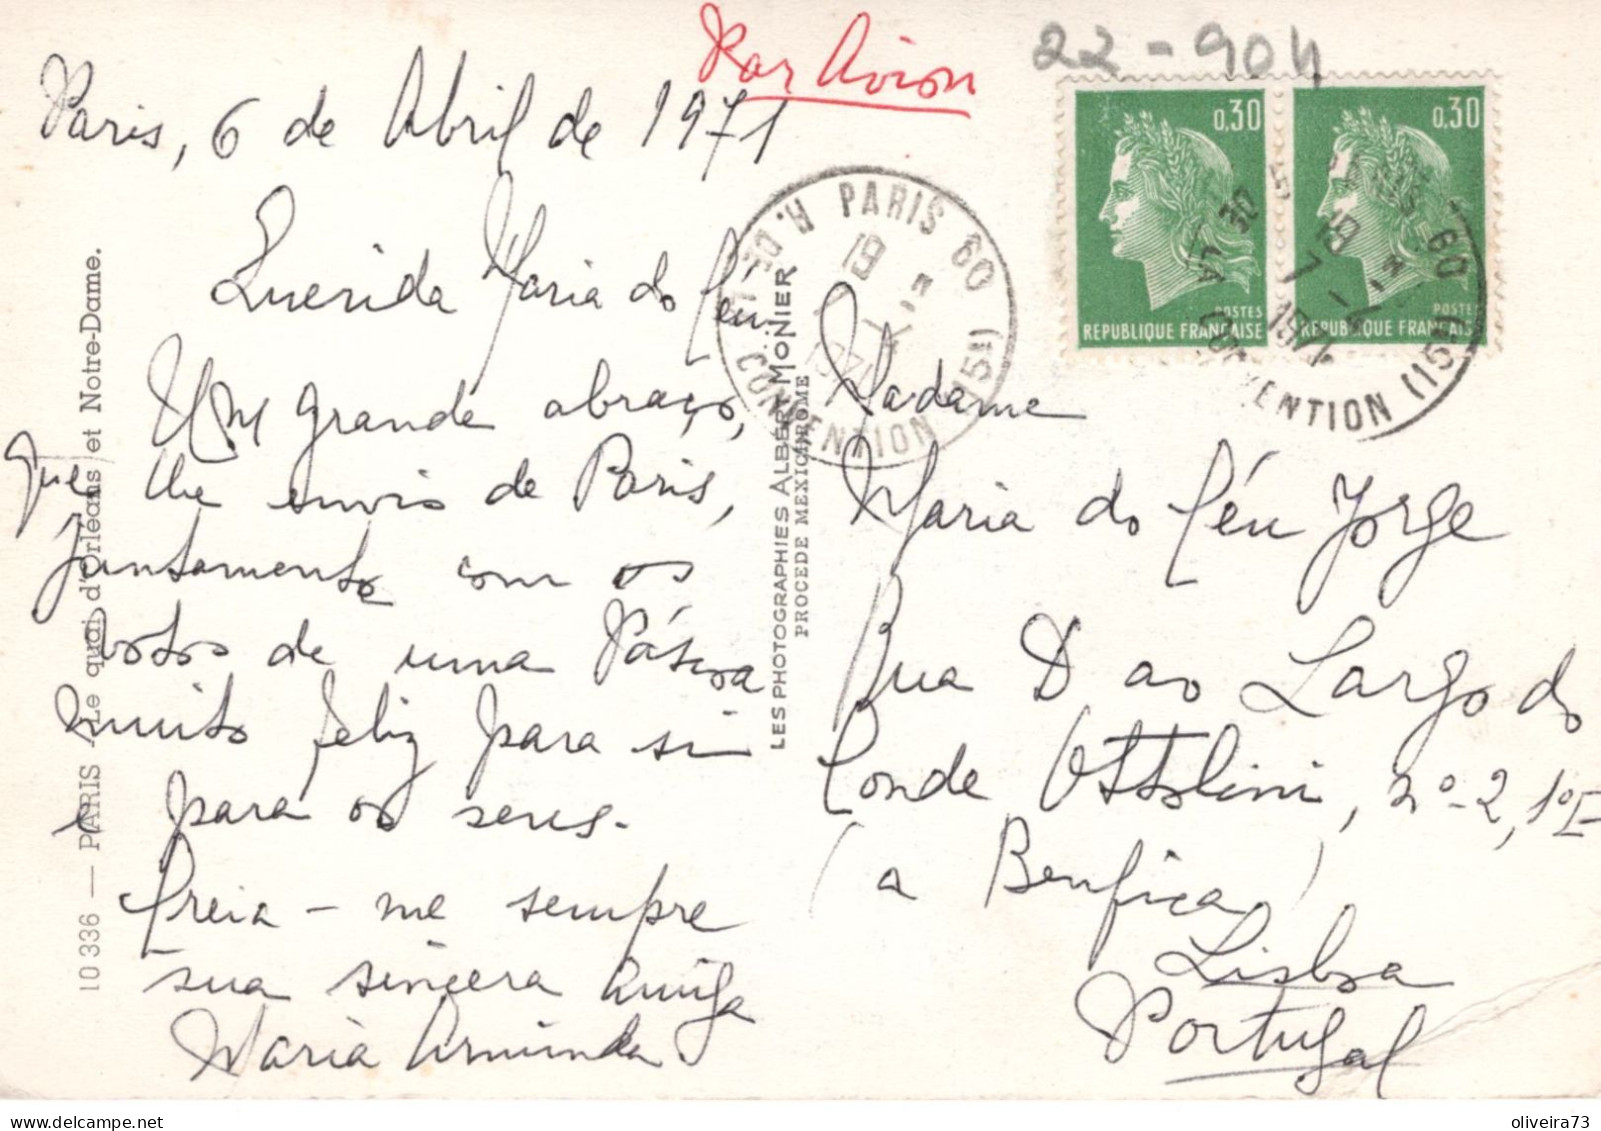 Par Avion
22-904
Paris, 6 de Abril de 1971
Querida Maria do Céu:
Um grande abraço,
que lhe envio de Paris,
juntamente com os
votos de uma Páscoa
muito feliz para si
e para os seus.
Creia-me sempre
sua sincera amiga
Maria Arminda.
10 336 — PARIS / Le quai d'orléans et Notre-Dame.
LES PHOTOGRAPHIES ALBERT MONIER
PROCEDE MEXICHROME
PARIS 60 (15E)
CONVENTION
0,30
POSTES
REPUBLIQUE FRANÇAISE
0,30
POSTES
REPUBLIQUE FRANÇAISE
Madame
Maria do Céu Jorge
Rua D ao Largo do
Conde Ottolini, nº-2, 1ºE
(a Benfica)
Lisboa
Portugal
oliveira73